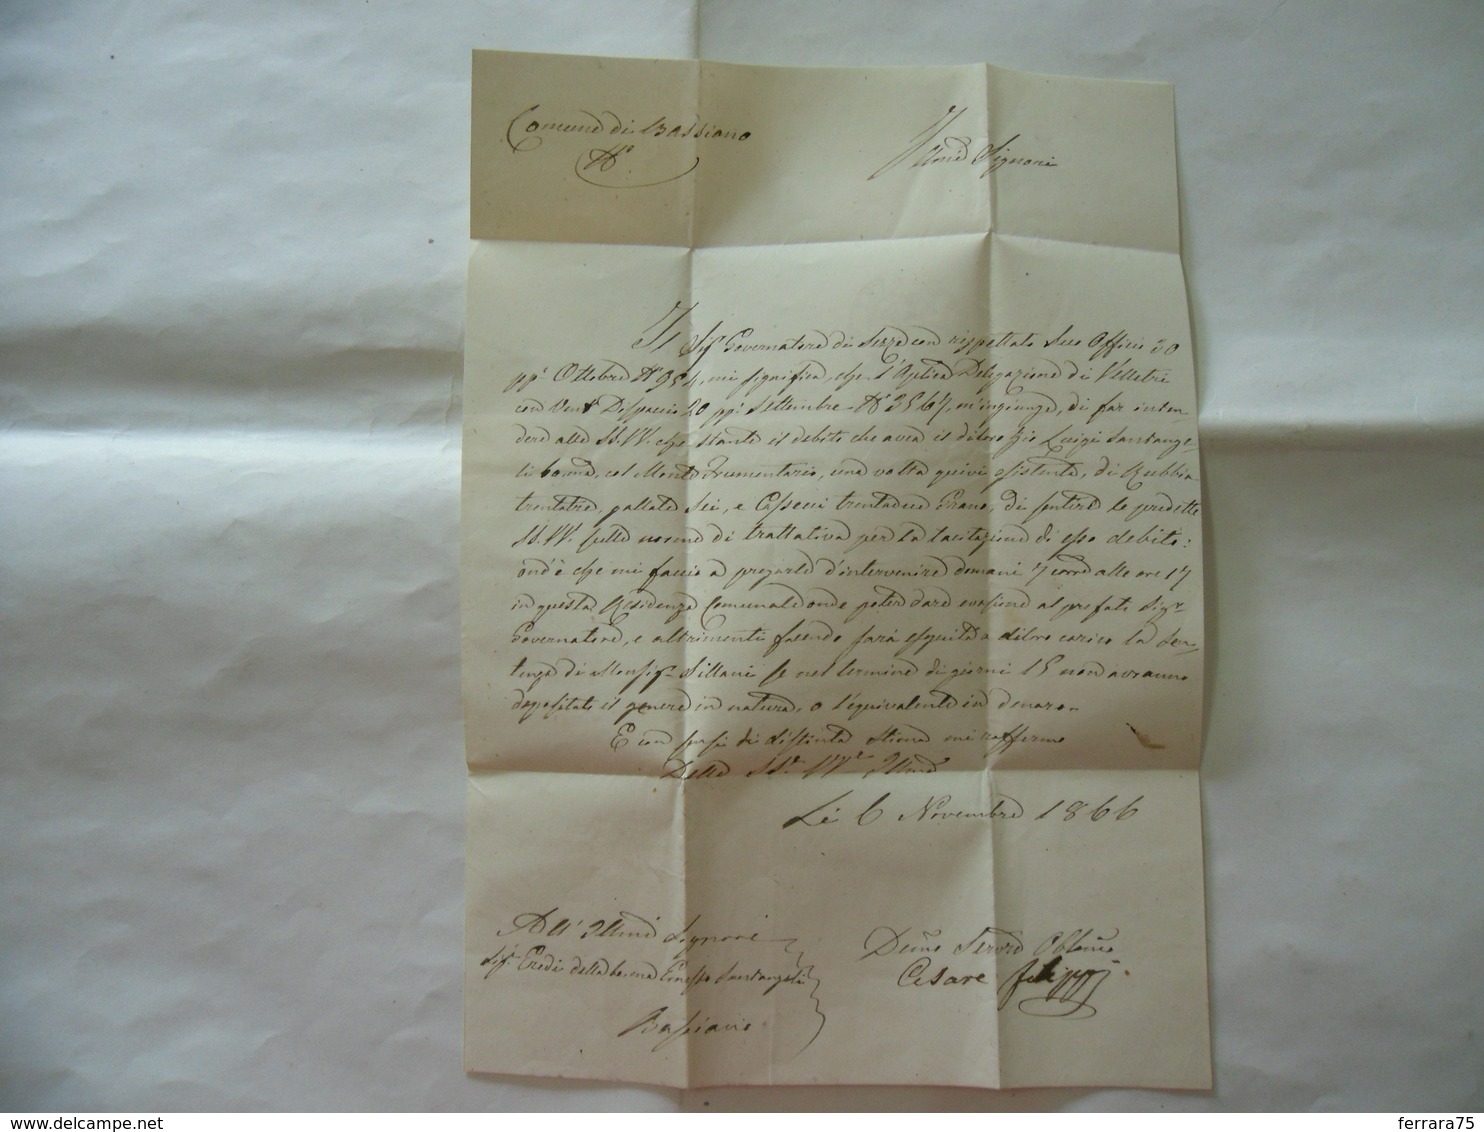 Comune di Bassiano
N°.
Illmi Signori
Il Sigr Governatore di Sezze con rispettato Suo Officio 30
pp° Ottobre N° 954, mi significa, che l'Aplica Delegazione di Velletri
con Vento Dispaccio 20 pp° Settembre N° 3567, m'ingiunge, di far inten-
dere alle SS.VV. che stante il debito che avea il di loro zio Luigi Santange-
li bo: ma, col Monte Frumentario, una volta quivi esistente, di Rubbia
trentatre, quattro Sei, e trentadue Grano, di sentire le predette
SS.VV. sulle norme di trattativa per la tacitazione di esso debito:
ond'è che mi faccio a pregarle d'intervenire domani 7 corre alle ore 17
in questa Residenza Comunale onde poter dare evasione al prefato Sigr
Governatore, e altrimenti facendo sarà eseguita a di loro carico la Sen-
tenza di Monsigr Sillani se nel termine di giorni 15 non avranno
depositato il genere in natura, o l'equivalente in denaro.
E con sensi di distinta stima mi raffermo
Delle SSe VVe Illme
Li 6 Novembre 1866
All' Illmi Signori
Sigri Eredi della bo: ma Ernesto Santangeli
Bassiano
Devmo Servre Obblmo
Cesare Filippi
ferrara75